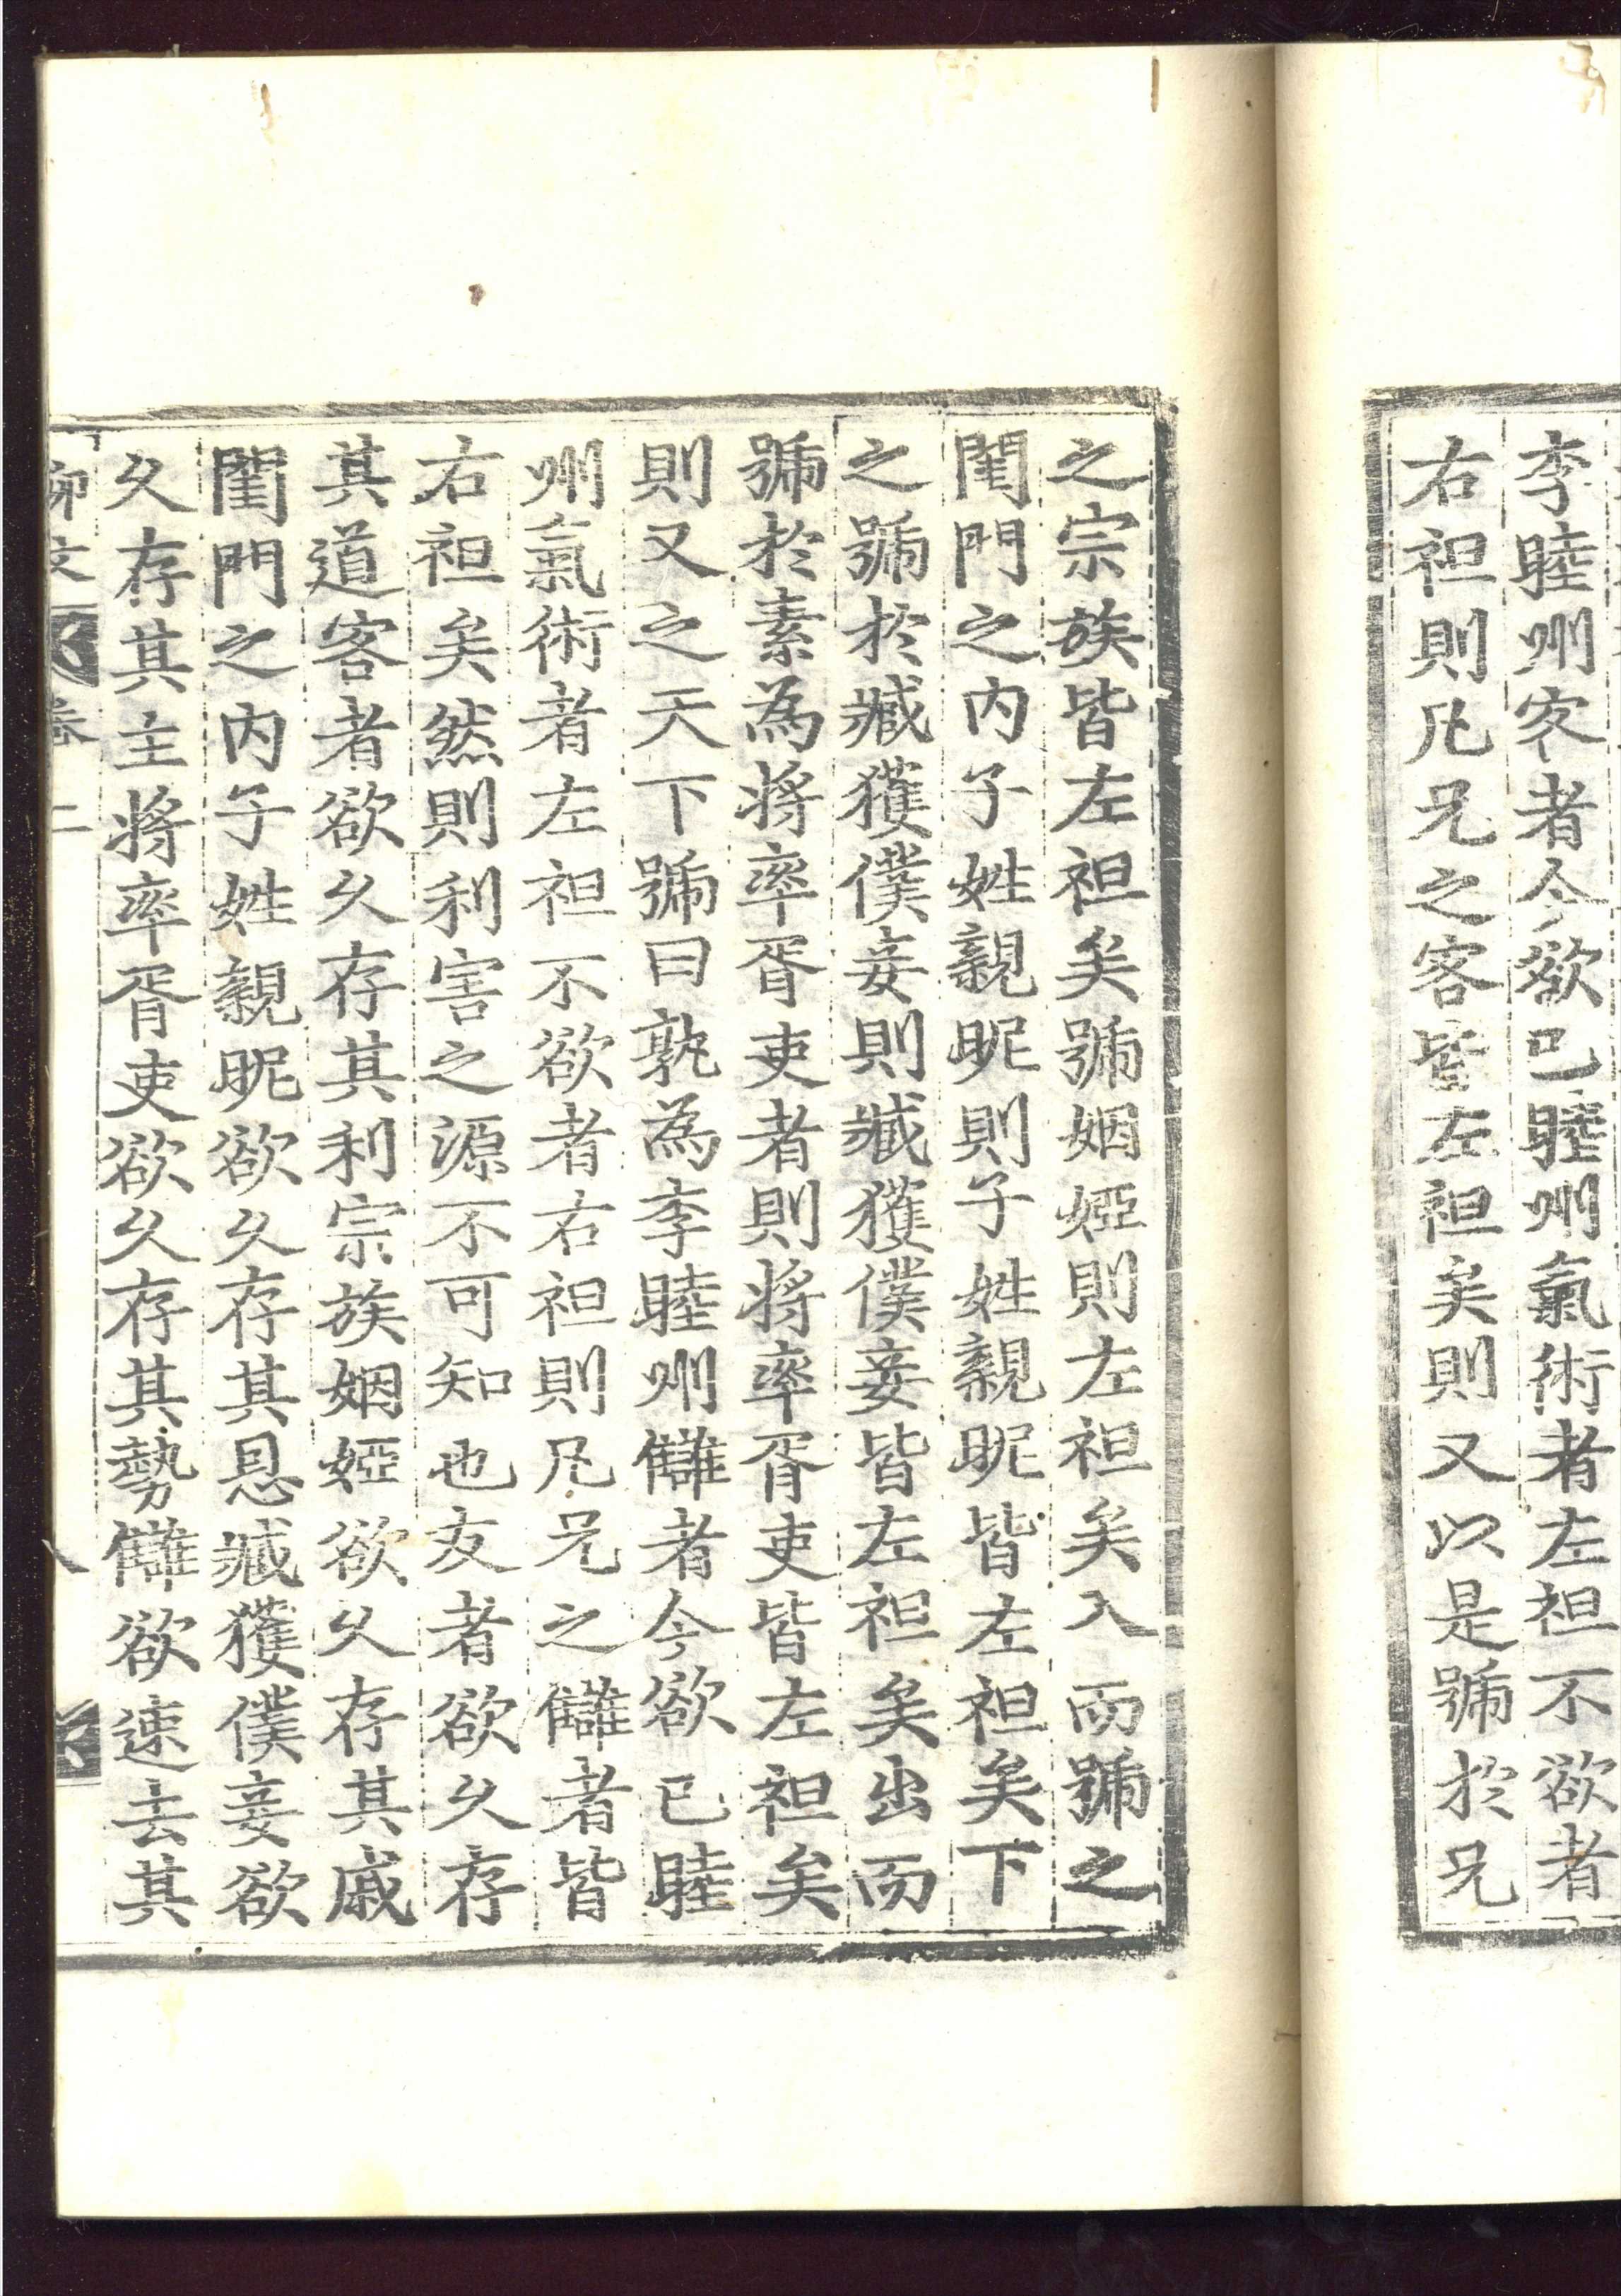 李睦州客者今欲已睦州氣術者左袒不欲者
右袒則凡兄之客皆左袒矣則又以是號於兄
之宗族皆左袒矣號姻婭則左袒矣入而號之
閨門之内子姓親昵則子姓親昵皆左袒矣下
之號於臧獲僕妾則臧獲僕妾皆左袒矣出而
號於素為將率胥吏者則將率胥吏皆左袒矣
則又之天下號曰孰為李睦州讎者今欲已睦
州氣術者左袒不欲者右袒則凡兄之讎者皆
右袒矣然則利害之源不可知也友者欲久存
其道客者欲久存其利宗族姻婭欲久存其戚
閨門之内子姓親昵欲久存其恩臧獲僕妾欲
久存其主將率胥吏欲久存其勢讎欲速去其
柳文 卷二 八